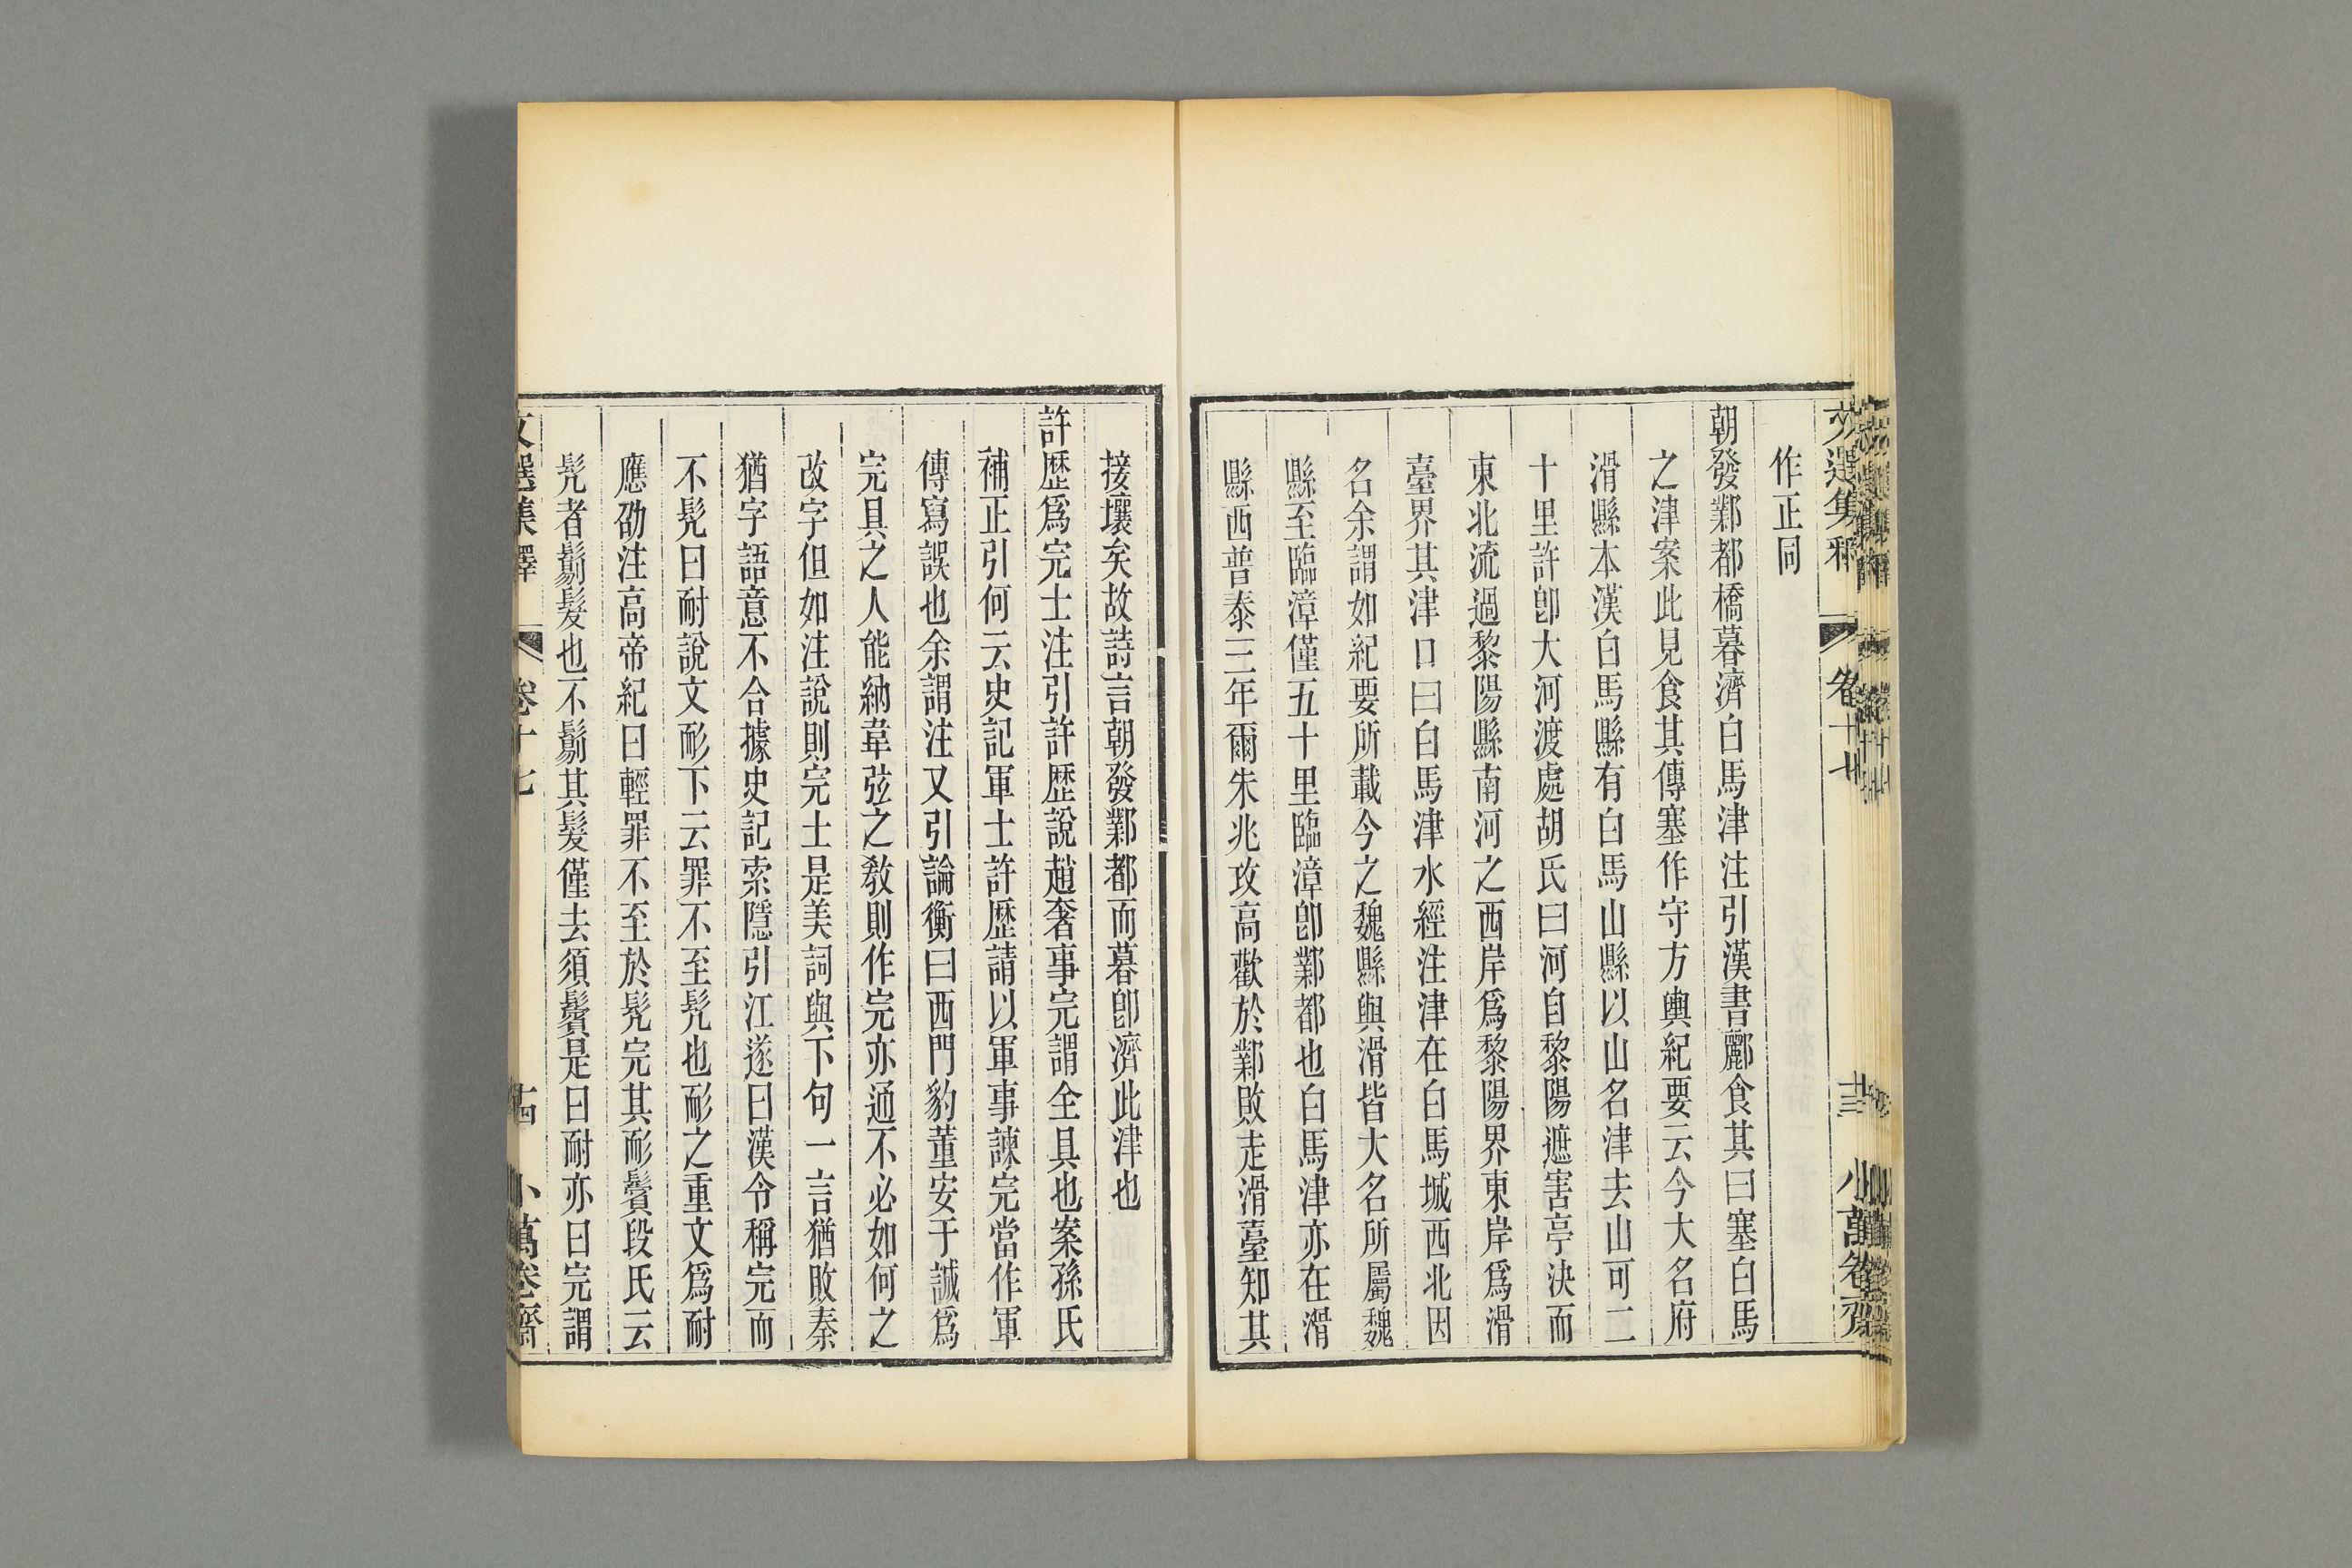 文選集釋 卷十七 十三 小萬卷齋
作正同
朝發鄴都橋暮濟白馬津注引漢書酈食其曰塞白馬
之津案此見食其傳塞作守方輿紀要云今大名府
滑縣本漢白馬縣有白馬山縣以山名津去山可二
十里許卽大河渡處胡氏曰河自黎陽遮害亭決而
東北流過黎陽縣南河之西岸爲黎陽界東岸爲滑
臺界其津口曰白馬津水經注津在白馬城西北因
名余謂如紀要所載今之魏縣與滑皆大名所屬魏
縣至臨漳僅五十里臨漳卽鄴都也白馬津亦在滑
縣西普泰三年爾朱兆攻高歡於鄴敗走滑臺知其
接壤矣故詩言朝發鄴都而暮卽濟此津也
許歷爲完士注引許歷說趙奢事完謂全具也案孫氏
補正引何云史記軍士許歷請以軍事諫完當作軍
傳寫誤也余謂注又引論衡曰西門豹董安于誠爲
完具之人能納韋弦之教則作完亦通不必如何之
改字但如注說則完士是美詞與下句一言猶敗秦
猶字語意不合據史記索隱引江遂曰漢令稱完而
不髡曰耐說文耏下云罪不至髡也耏之重文爲耐
應劭注高帝紀曰輕罪不至於髡完其耏鬢段氏云
髡者鬄髮也不鬄其髮僅去須鬢是曰耐亦曰完謂
文選集釋 卷十七 十四 小萬卷齋